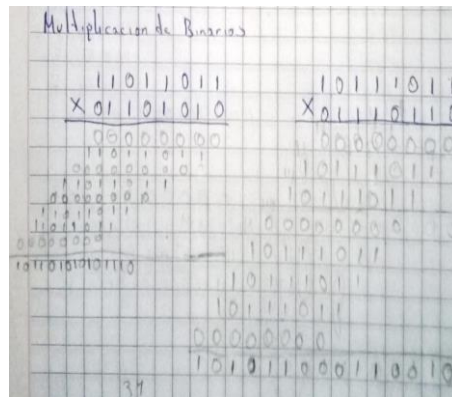 Multiplicacion de Binarios
11011011
X 01101010
00000000
11011011
00000000
11011011
00000000
11011011
11011011
00000000
101101010101110
10111011
X 01110110
00000000
10111011
10111011
00000000
10111011
10111011
10111011
00000000
101011000110010